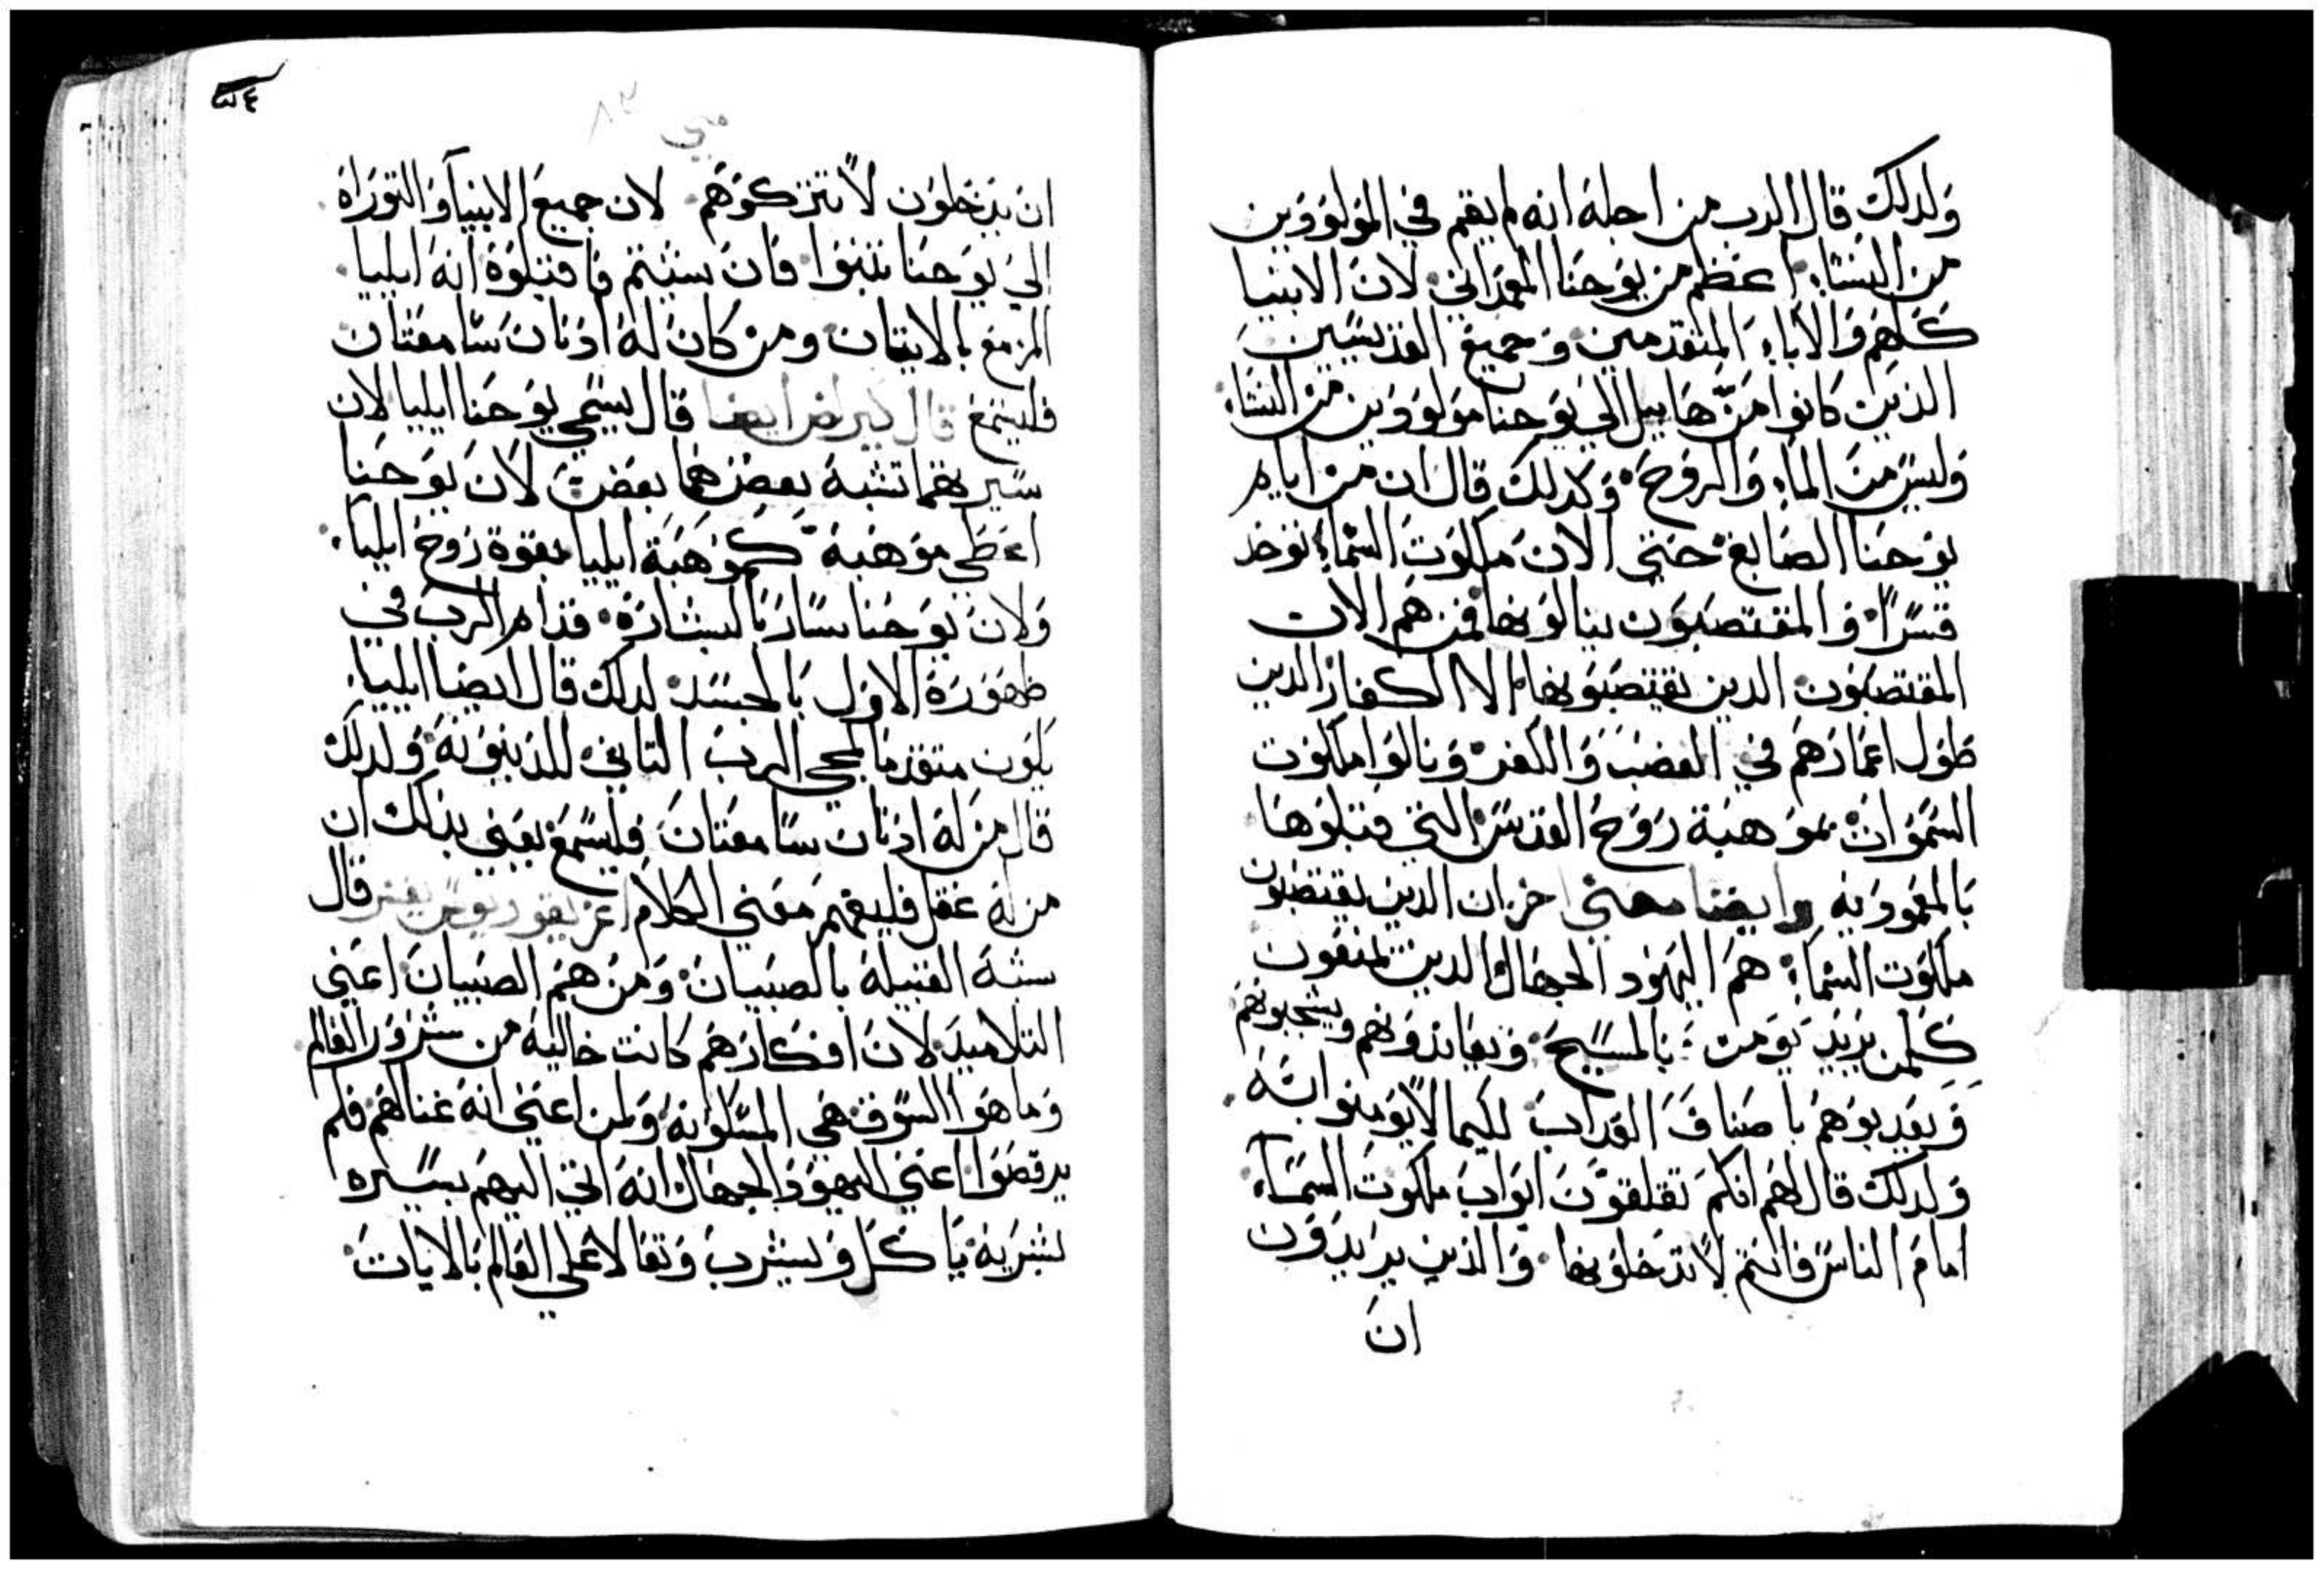 ولدلك قال الرب من اجله انه لم يقم في المولودين
من النسا اعظم من يوحنا المعمداني لان الانبيا
كلهم والاباء المتقدمين وجميع القديسين
الذين كانوا من هابيل الي يوحنا مولودين من النسا
وليس من الماء والروح وكدلك قال ان من ايام
يوحنا الصابغ حتي الان ملكوت السماء توخد
قسرا والمغتصبون ينالونها فمن هم الان
المغتصبون الدين يغتصبونها الا الكفار الدين
طول اعمارهم في الغضب والكفر ونالوا ملكوت
السموات بموهبة روح القدس التي قبلوها
بالمعمودية وايضا معني اخر ان الدين يغتصبون
ملكوت السماء هم اليهود الجهال الدين يمنعون
كلمن يريد يومن بالمسيح ويعاندونهم ويسحبونهم
ويعدبوهم باصناف العداب لكيما لا يومنوا بته
ولدلك قال لهم انكم تغلقون ابواب ملكوت السماء
امام الناس فانتم لا تدخلونها والذين يريدون
ان
متي
٨٣
ان يدخلون لا تتركوهم لان جميع الانبيا والتوراة
الي يوحنا تنبوا فان شيتم فاقبلوه انه ايليا
المزمع بالاتيان ومن كان له ادنان سامعتان
فليستمع قال كيرلص ايضا قال يسمي يوحنا ايليا لان
سيرتهما تشبه بعضهما بعض لان يوحنا
اعطي موهبة كموهبة ايليا بقوة روح ايليا
ولان يوحنا سار بالبشارة قدام الرب في
ظهوره الاول بالجسد لدلك قال ايضا ايليا
يكون متقدما لمجي الرب التاني للدينونة ولدلك
قال من له ادنان سامعتان فليسمع يعني بدلك ان
من له عقل فليفهم معني الكلام اغريغوريوس يفسر قال
شبه القبيلة بالصبيان ومن هم الصبيان اعني
التلاميد لان افكارهم كانت خالية من شرور العالم
وما هو السوق هي المسكونة ولمن اعني انه غنا لهم فلم
يرقصوا اعني اليهود الجهال انه اتي اليهم بسيره
بشرية ياكل ويشرب وتعالا علي العالم بالايات